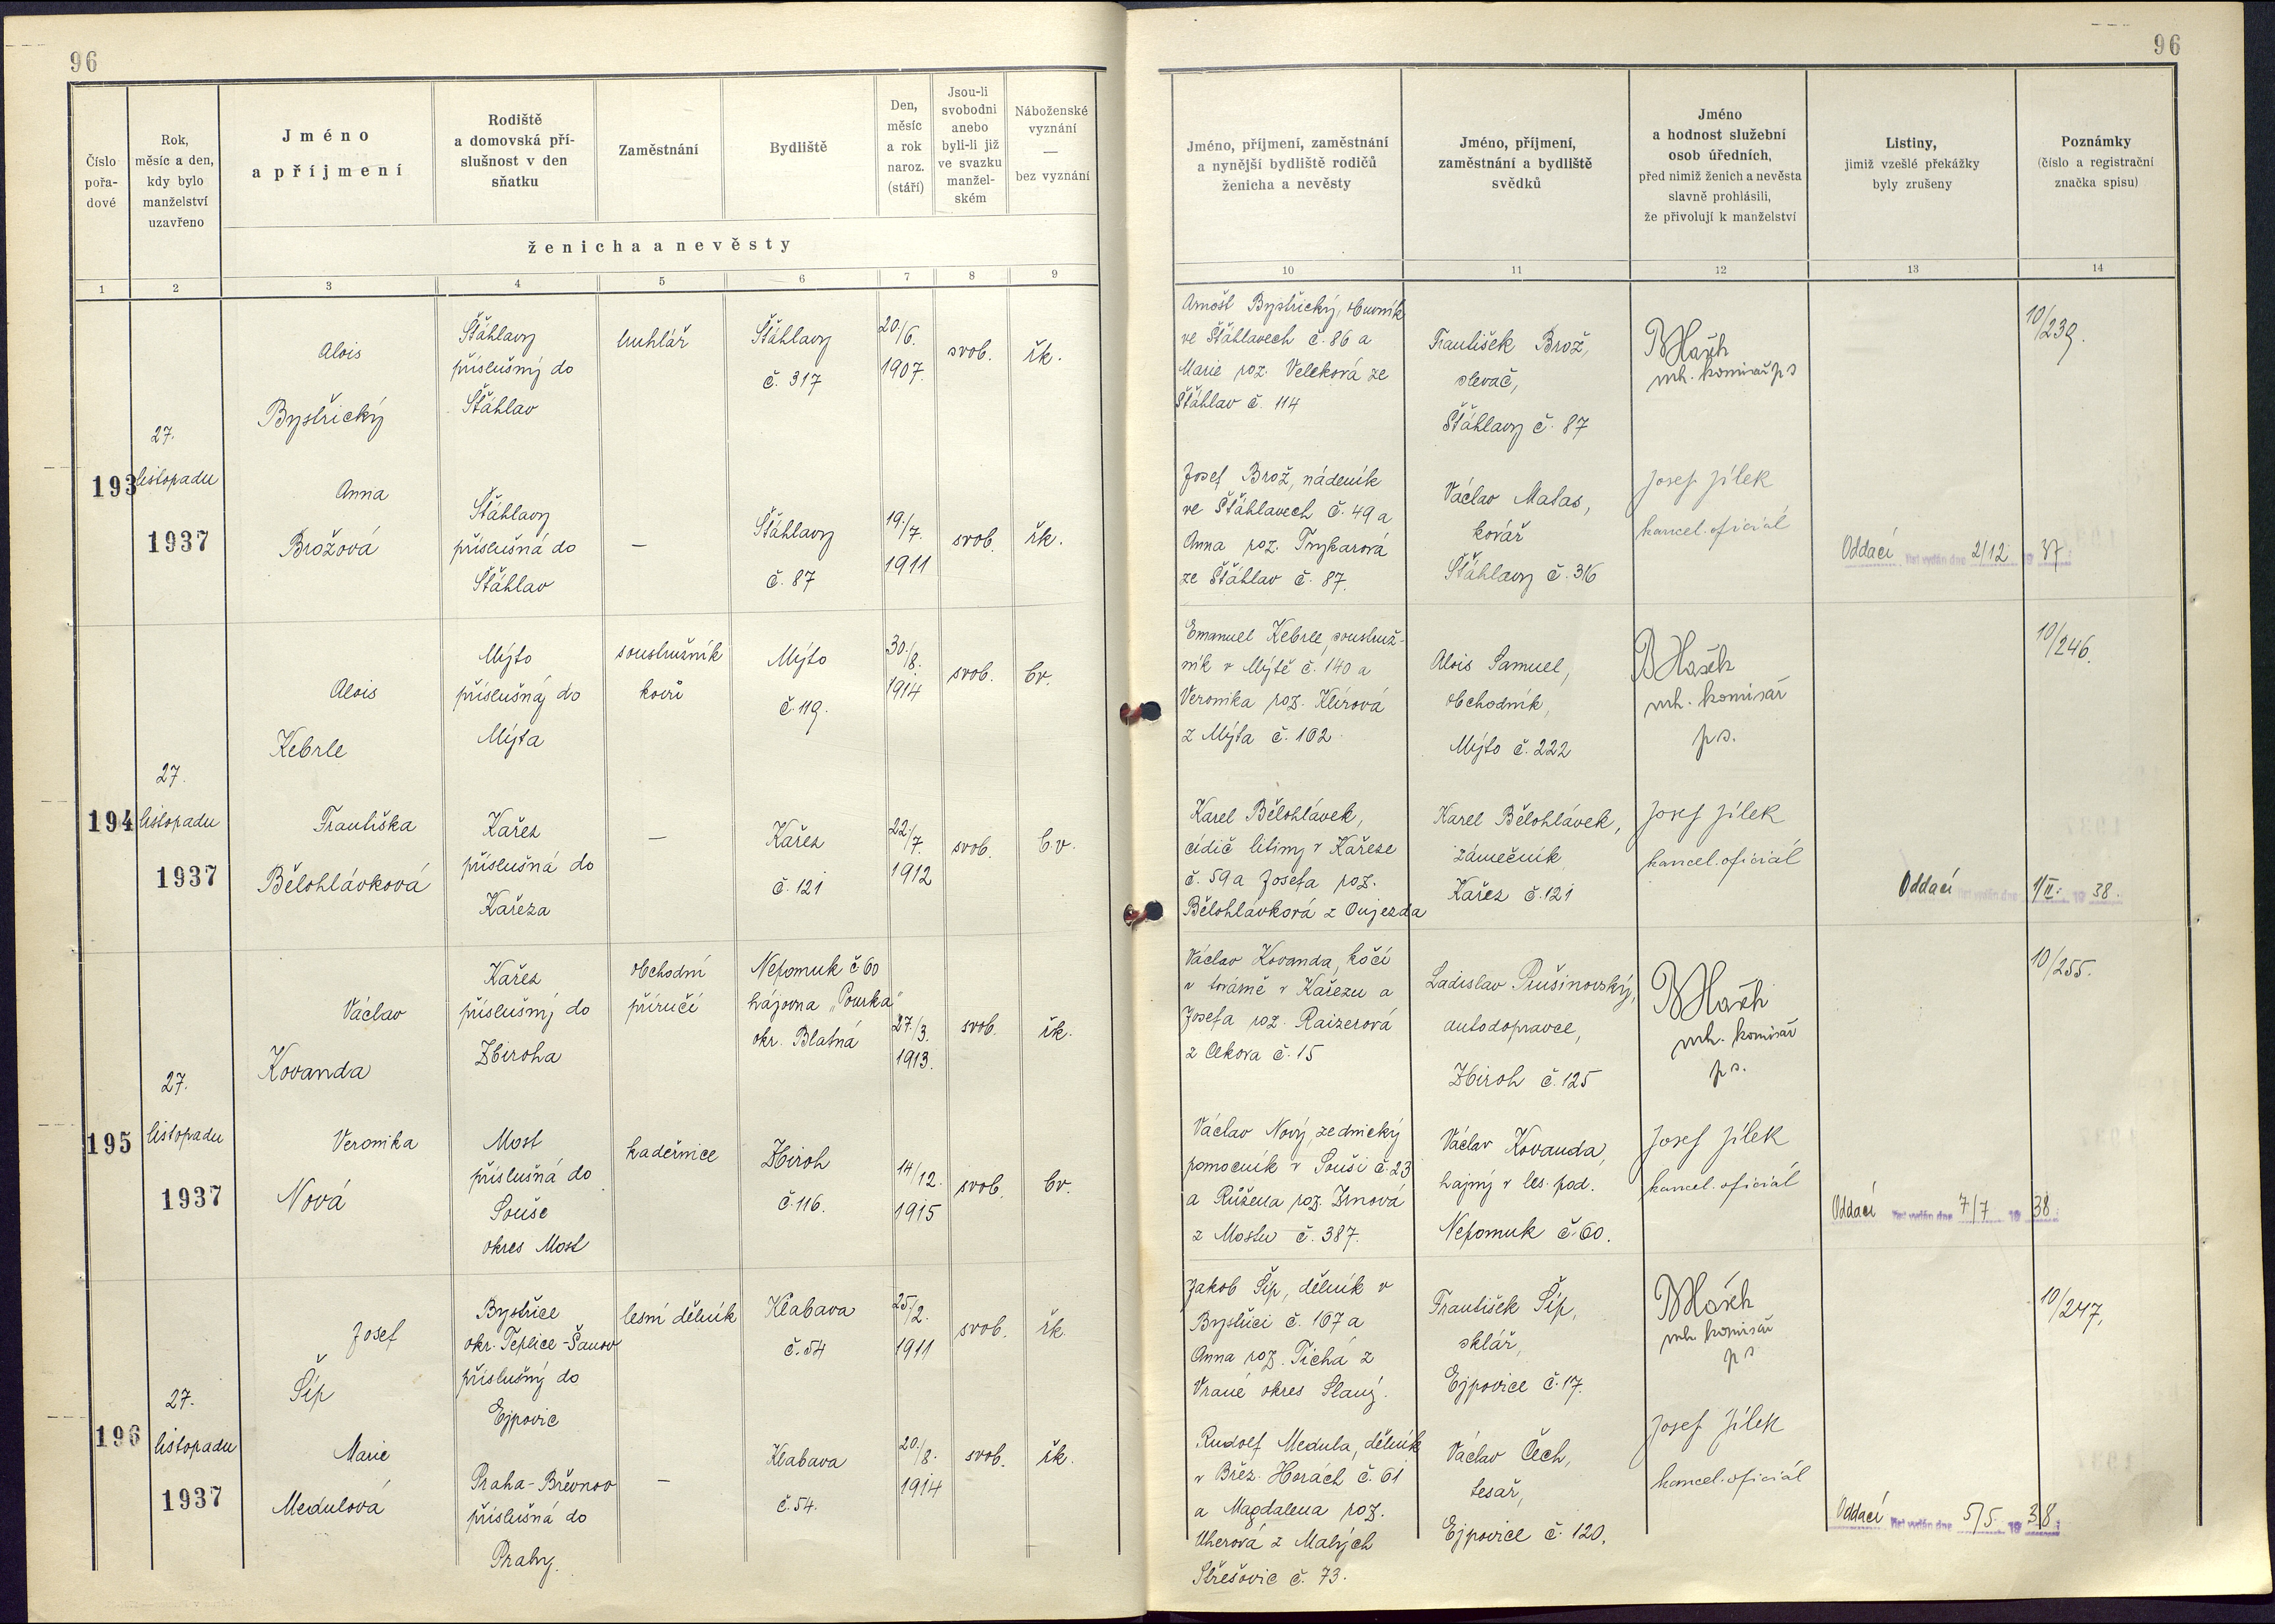 96
96
Číslo pořa-dové
Rok, měsíc a den, kdy bylo manželství uzavřeno
Jméno a příjmení
Rodiště a domovská pří-slušnost v den sňatku
Zaměstnání
Bydliště
Den, měsíc a rok naroz. (stáří)
Jsou-li svobodni anebo byli-li již ve svazku manžel-ském
Náboženské vyznání — bez vyznání
ženicha a nevěsty
Jméno, příjmení, zaměstnání a nynější bydliště rodičů ženicha a nevěsty
Jméno, příjmení, zaměstnání a bydliště svědků
Jméno a hodnost služební osob úředních, před nimiž ženich a nevěsta slavně prohlásili, že přivolují k manželství
Listiny, jimiž vzešlé překážky byly zrušeny
Poznámky (číslo a registrační značka spisu)
1 2 3 4 5 6 7 8 9 10 11 12 13 14
193
27.
listopadu
1937
Alois
Bystřický
Šťáhlavy
příslušný do
Šťáhlav
truhlář
Šťáhlavy
č. 317
20./6.
1907.
svob.
řk.
Arnošt Bystřický,
ve Šťáhlavech č. 86 a
Marie roz. Veleková ze
Šťáhlav č. 114
František Brož,
slevač,
Šťáhlavy č. 87
vrh. komisař ps
10/239.
Anna
Brožová
Šťáhlavy
příslušná do
Šťáhlav
—
Šťáhlavy
č. 87
19./7.
1911
svob.
řk.
Josef Brož, nádeník
ve Šťáhlavech č. 49 a
Anna roz.
ze Šťáhlav č. 87.
Václav Matas,
kovář
Šťáhlavy č. 316
Josef Jílek
kancel. oficiál
Oddací list vydán dne 2/12 19 37
194
27.
listopadu
1937
Alois
Kebrle
Mýto
příslušný do
Mýta
soustružník
kovů
Mýto
č. 119.
30./8.
1914
svob.
bv.
Emanuel Kebrle, soustruž-
ník v Mýtě č. 140 a
Veronika roz. Klírová
z Mýta č. 102
Alois Samuel,
obchodník,
Mýto č. 222
vrh. komisař
ps.
10/246.
Františka
Bělohlávková
Kařez
příslušná do
Kařeza
—
Kařez
č. 121
22./7.
1912
svob.
b.v.
Karel Bělohlávek,
cídič litiny v Kařeze
č. 59 a Josefa roz.
Bělohlávková z Oujezda
Karel Bělohlávek,
zámečník
Kařez č. 121
Josef Jílek
kancel. oficiál
Oddací list vydán dne 1/II. 19 38.
195
27.
listopadu
1937
Václav
Kovanda
Kařez
příslušný do
Zbiroha
obchodní
příručí
Nepomuk č 60
hájovna „Pourka"
okr. Blatná
27./3.
1913.
svob.
řk.
Václav Kovanda, kočí
v továrně v Kařezu a
Josefa roz. Raizerová
z Cekova č. 15
Ladislav Prušinovský,
autodopravce,
Zbiroh č. 125
vrh. komisař
ps.
10/255.
Veronika
Nová
Most
příslušná do
Souše
okres Most
kadeřnice
Zbiroh
č. 116.
14/12.
1915
svob.
bv.
Václav Nový, zednický
pomocník v Souši č. 23
a Růžena roz. Zrnová
z Mostu č. 387.
Václav Kovanda,
hajný v les. pod.
Nepomuk č. 60.
Josef Jílek
kancel. oficiál
Oddací list vydán dne 7/7 19 38
196
27.
listopadu
1937
Josef
Šíp
Bystřice
okr. Teplice-Šanov
příslušný do
Ejpovic
lesní dělník
Klabava
č. 54
25/2.
1911
svob.
řk.
Jakob Šíp, dělník v
Bystřici č. 167 a
Anna roz. Tichá z
Vrané okres Slaný.
František Šíp,
sklář,
Ejpovice č. 17.
vrh komisař
ps
10/247,
Marie
Medulová
Praha-Břevnov
příslušná do
Prahy.
—
Klabava
č. 54.
20./8.
1914
svob.
řk.
Rudolf Medula, dělník
v Břez. Horách č. 61
a Magdalena roz.
Uherová z Malých
Střešovic č. 73.
Václav Čech,
tesař,
Ejpovice č. 120.
Josef Jílek
kancel. oficiál
Oddací list vydán dne 5/5. 19 38